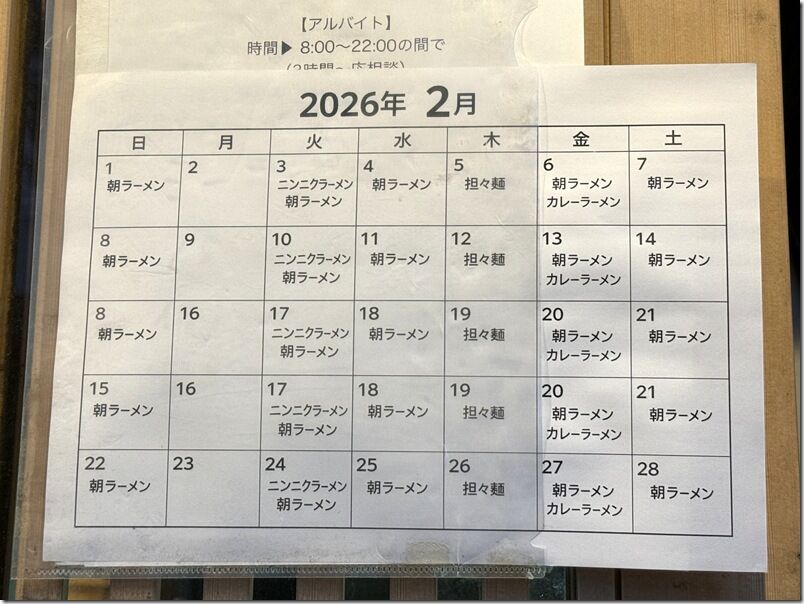 【アルバイト】
時間▶ 8:00～22:00の間で
2026年 2月
日 月 火 水 木 金 土
1 2 3 4 5 6 7
朝ラーメン ニンニクラーメン 朝ラーメン 担々麺 朝ラーメン 朝ラーメン
朝ラーメン カレーラーメン
8 9 10 11 12 13 14
朝ラーメン ニンニクラーメン 朝ラーメン 担々麺 朝ラーメン 朝ラーメン
朝ラーメン カレーラーメン
8 16 17 18 19 20 21
朝ラーメン ニンニクラーメン 朝ラーメン 担々麺 朝ラーメン 朝ラーメン
朝ラーメン カレーラーメン
15 16 17 18 19 20 21
朝ラーメン ニンニクラーメン 朝ラーメン 担々麺 朝ラーメン 朝ラーメン
朝ラーメン カレーラーメン
22 23 24 25 26 27 28
朝ラーメン ニンニクラーメン 朝ラーメン 担々麺 朝ラーメン 朝ラーメン
朝ラーメン カレーラーメン